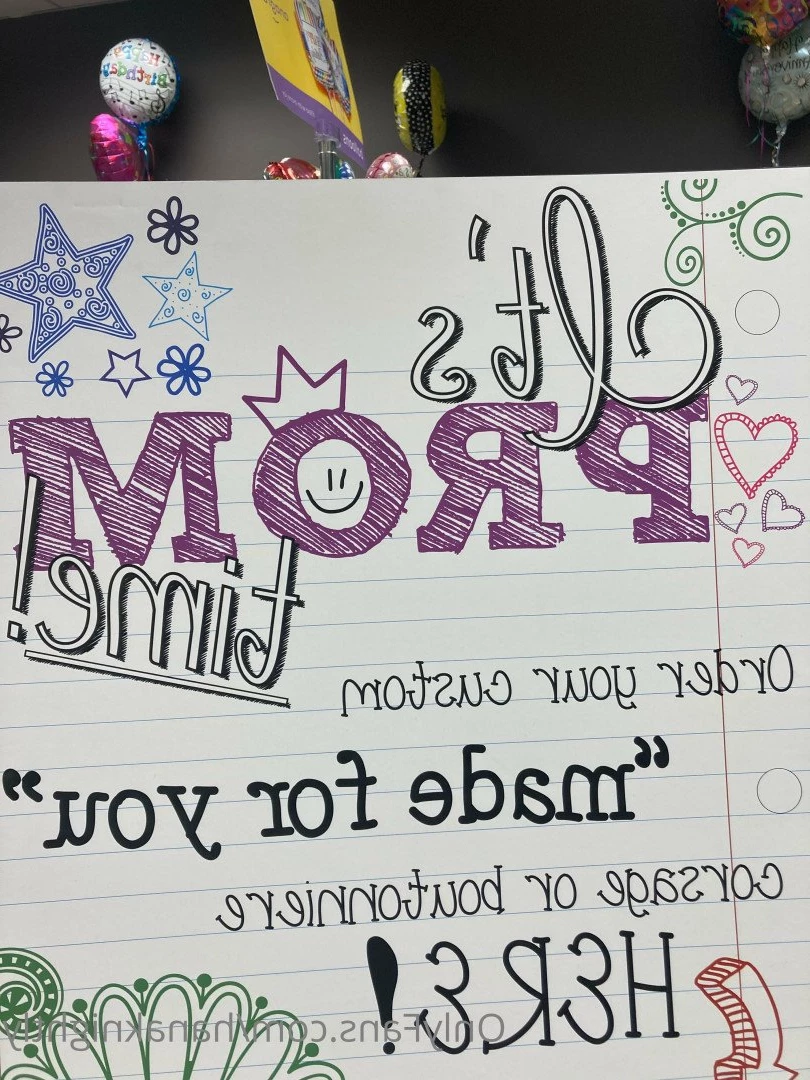 Happy
Birthday
It's
PROM
time!
Order your custom
"made for you"
corsage or boutonniere
HERE!
OnlyFans.com/hanaknightly